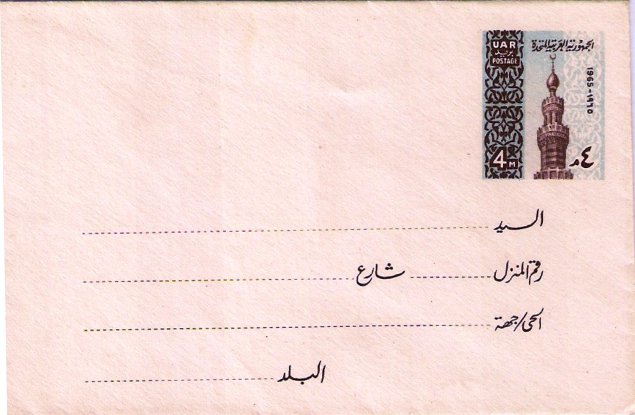 UAR
بريد
POSTAGE
الجمهورية العربية المتحدة
1965-١٩٦٥
4M
٤م
السيد
رقم المنزل شارع
الحى/جهة
البلد